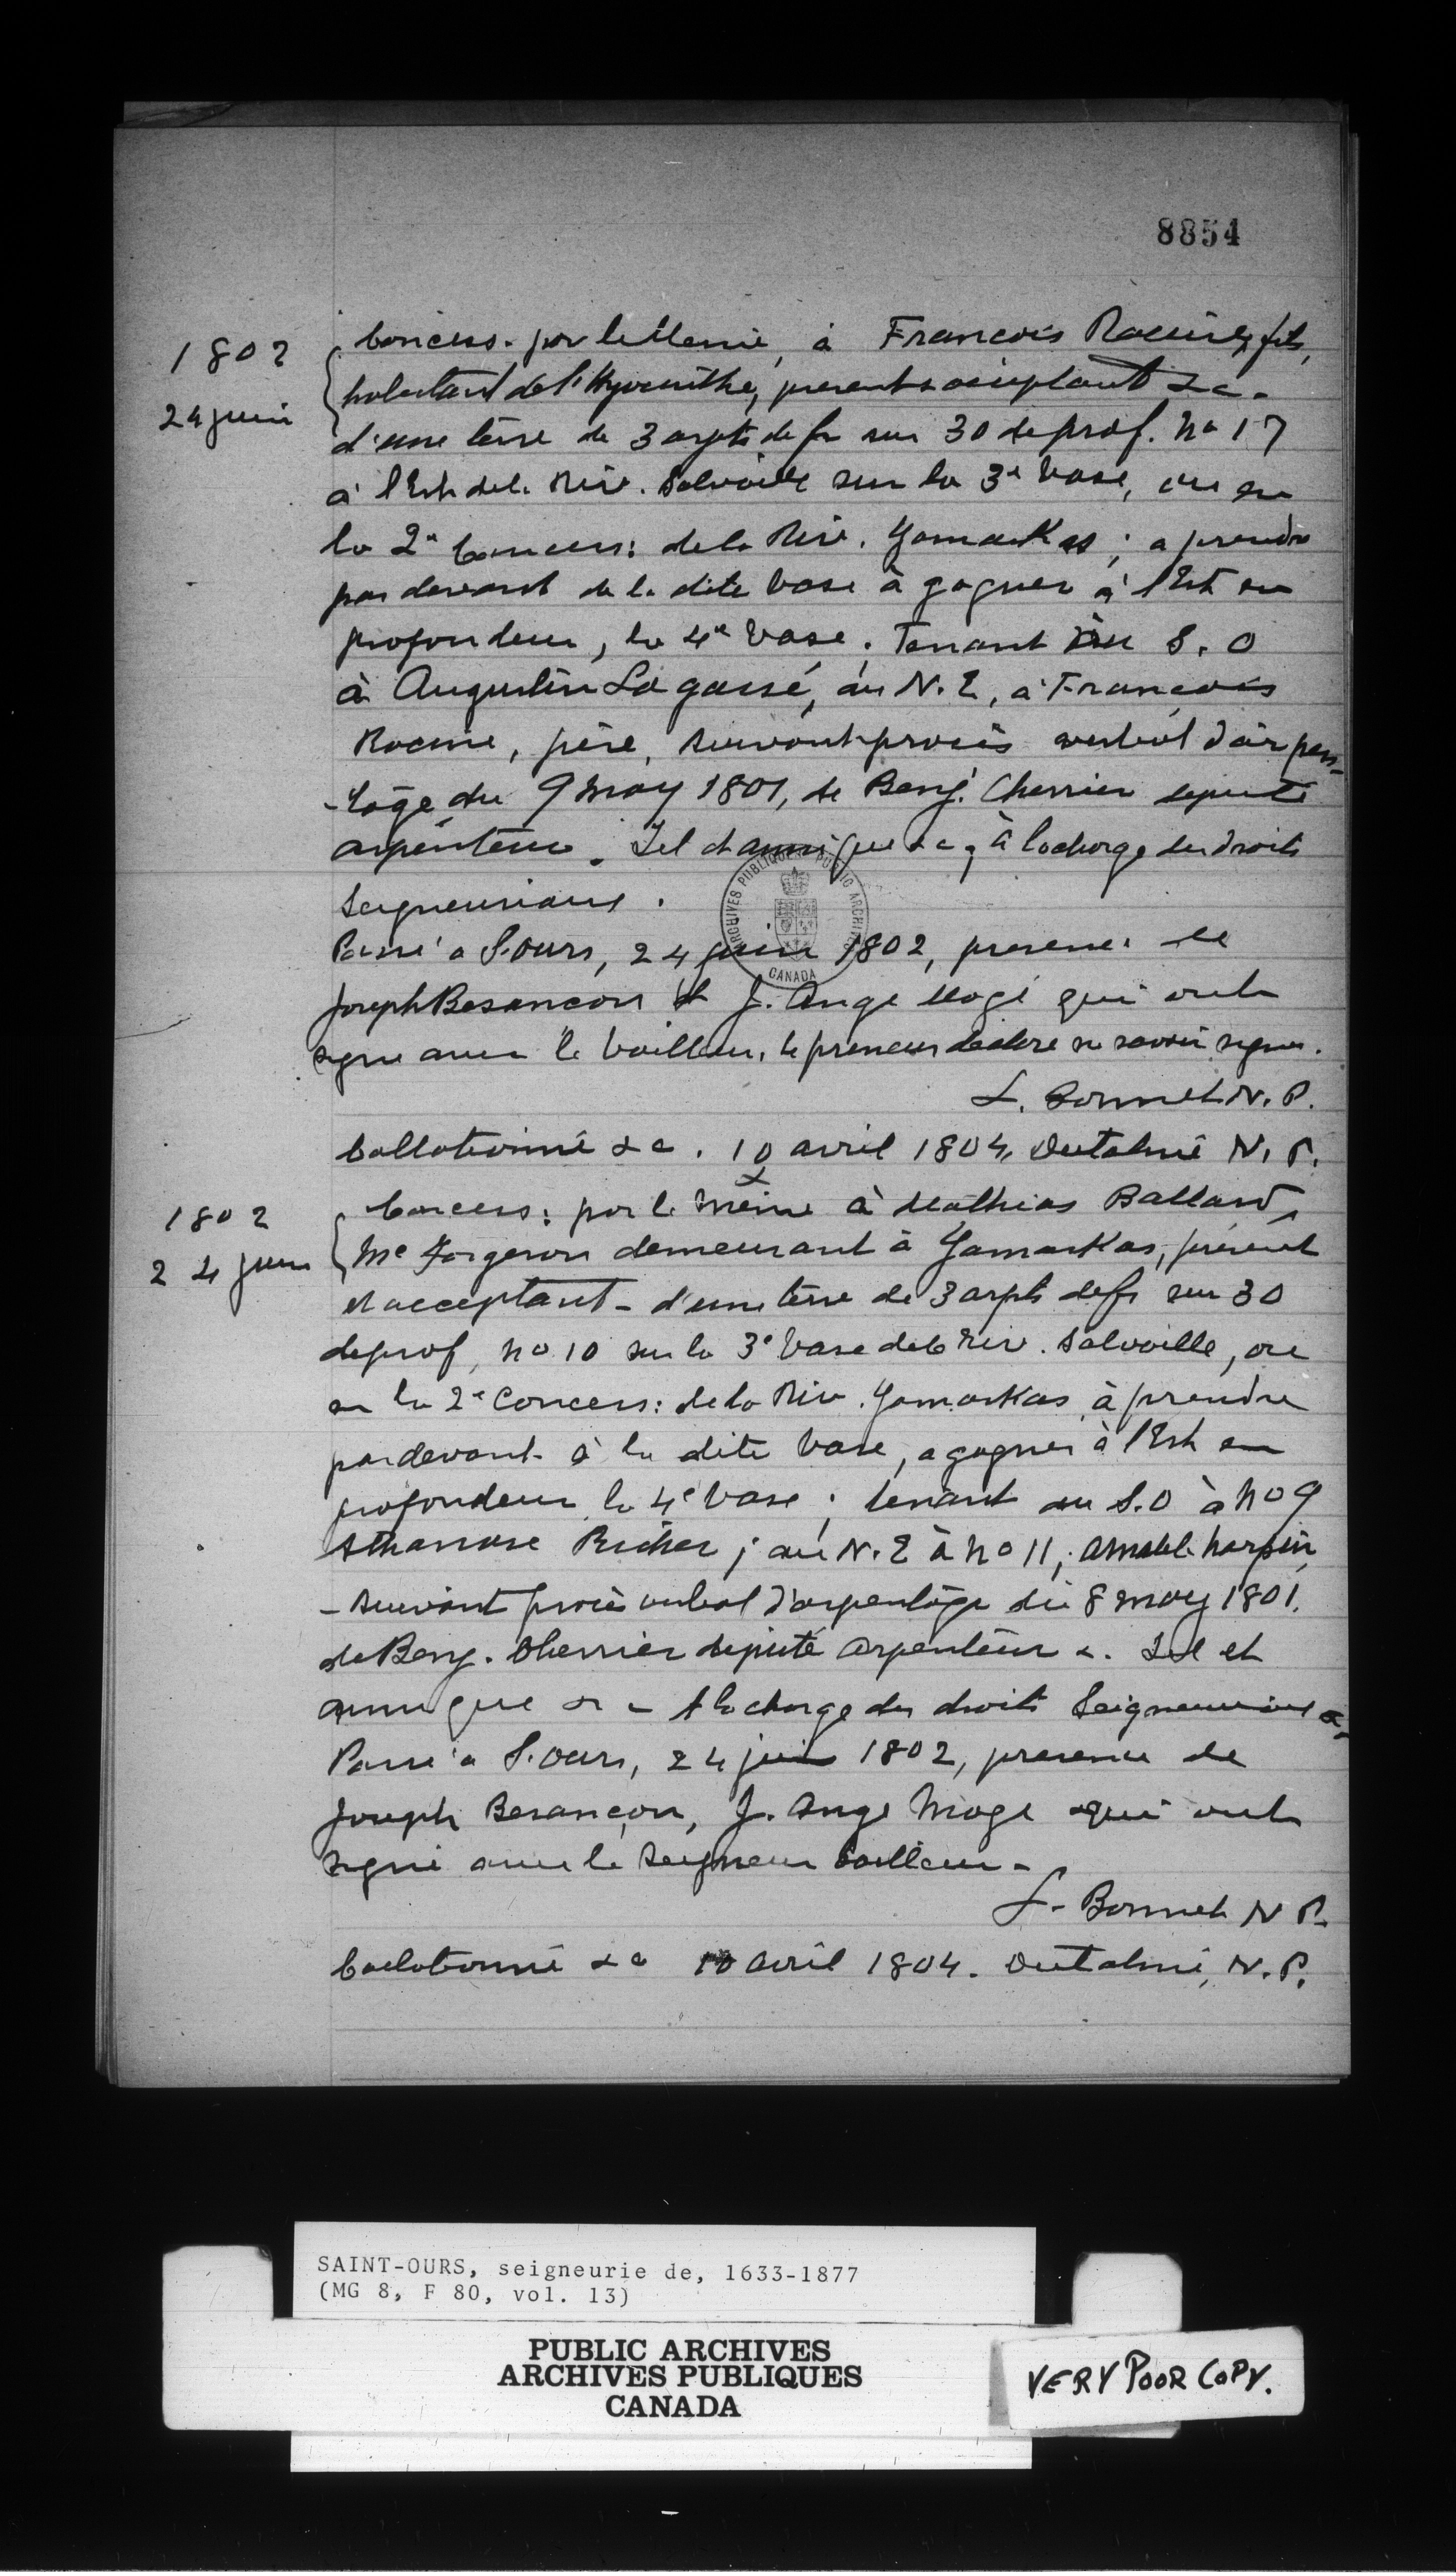 8854
1802
24 juin
Concess. par le Meme, à Francois Racine, fils,
habitant de St Hyacinthe, present & acceptant &c.
d'une terre de 3 arpts de fr sur 30 de prof. No 17
à l'Est de la Riv. Salvaille sur la 3e base, ou en
la 2e Concess: de la Riv. Yamaskas; a prendre
par devant de la dite base à gagner à l'Est en
profondeur, la 4e base. Tenant au S. O
à Augustin Lagassé, au N. E, à Francois
Racine, père, suivant procès verbal d'arpen-
-tage du 9 may 1801, de Benj. Cherrier deputé
arpenteur. Tel et ainsi que &c; à la charge des droits
Seigneuriaux.
Passé a S. Ours, 24 juin 1802, presence de
Joseph Besancon et J. Ange Mogé qui ont
signe avec le bailleur, le preneur declare ne savoir signer.
L. Bonnet N. P.
Collationné &c. 10 avril 1804, Dutalmé N. P.
1802
24 juin
Concess: par le même à Mathias Ballard,
Me Forgeron demeurant à Yamaskas, présent
et acceptant - d'une terre de 3 arpts de fr sur 30
de prof, no 10 sur la 3e base de la riv. Salvaille, ou
en la 2e Concess: de la Riv. Yamaskas à prendre
par devant à la dite base, a gagner à l'Est en
profondeur la 4e base; tenant au S. O à no 9
Athanase Richer; au N. E à no 11, Amable harpin,
- suivant procès verbal d'arpentage du 8 may 1801.
de Benj. Cherrier deputé arpenteur &. Tel et
ainsi que &c - A la charge des droits Seigneuriaux &
Passé a S. Ours, 24 juin 1802, presence de
Joseph Besançon, J. Ange Mogé qui ont
signé avec le Seigneur bailleur -
L. Bonnet N P.
Collationné &c 10 avril 1804. Dutalmé, N. P.
ARCHIVES PUBLIQUES PUBLIC ARCHIVES
CANADA
SAINT-OURS, seigneurie de, 1633-1877
(MG 8, F 80, vol. 13)
PUBLIC ARCHIVES
ARCHIVES PUBLIQUES
CANADA
VERY POOR COPY.